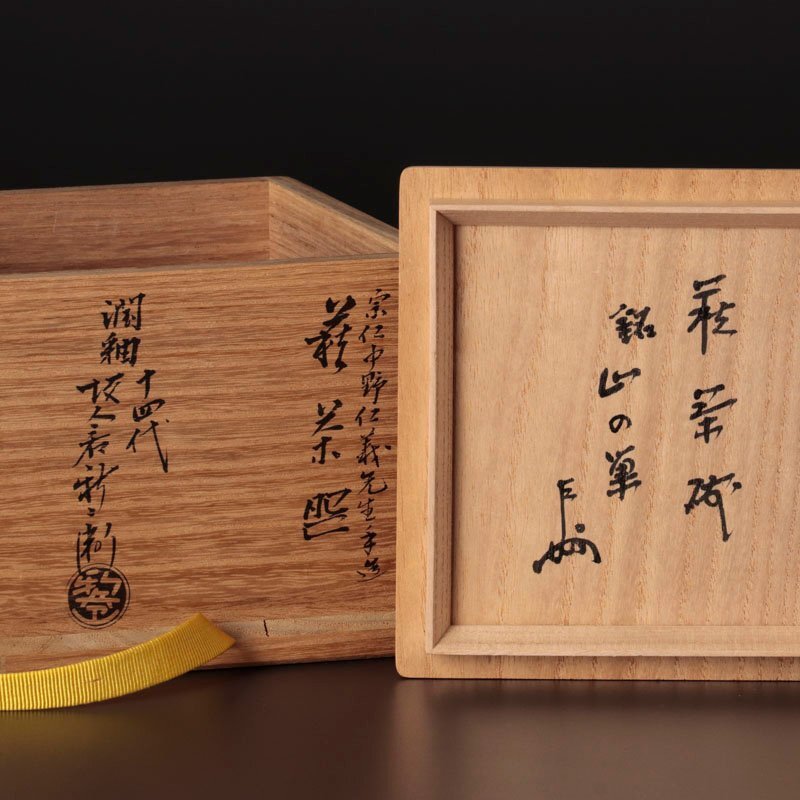 萩茶碗
銘 山の
宗仁中野仁義先生手造
萩茶盌
十四代
潤釉 坂倉新兵衛